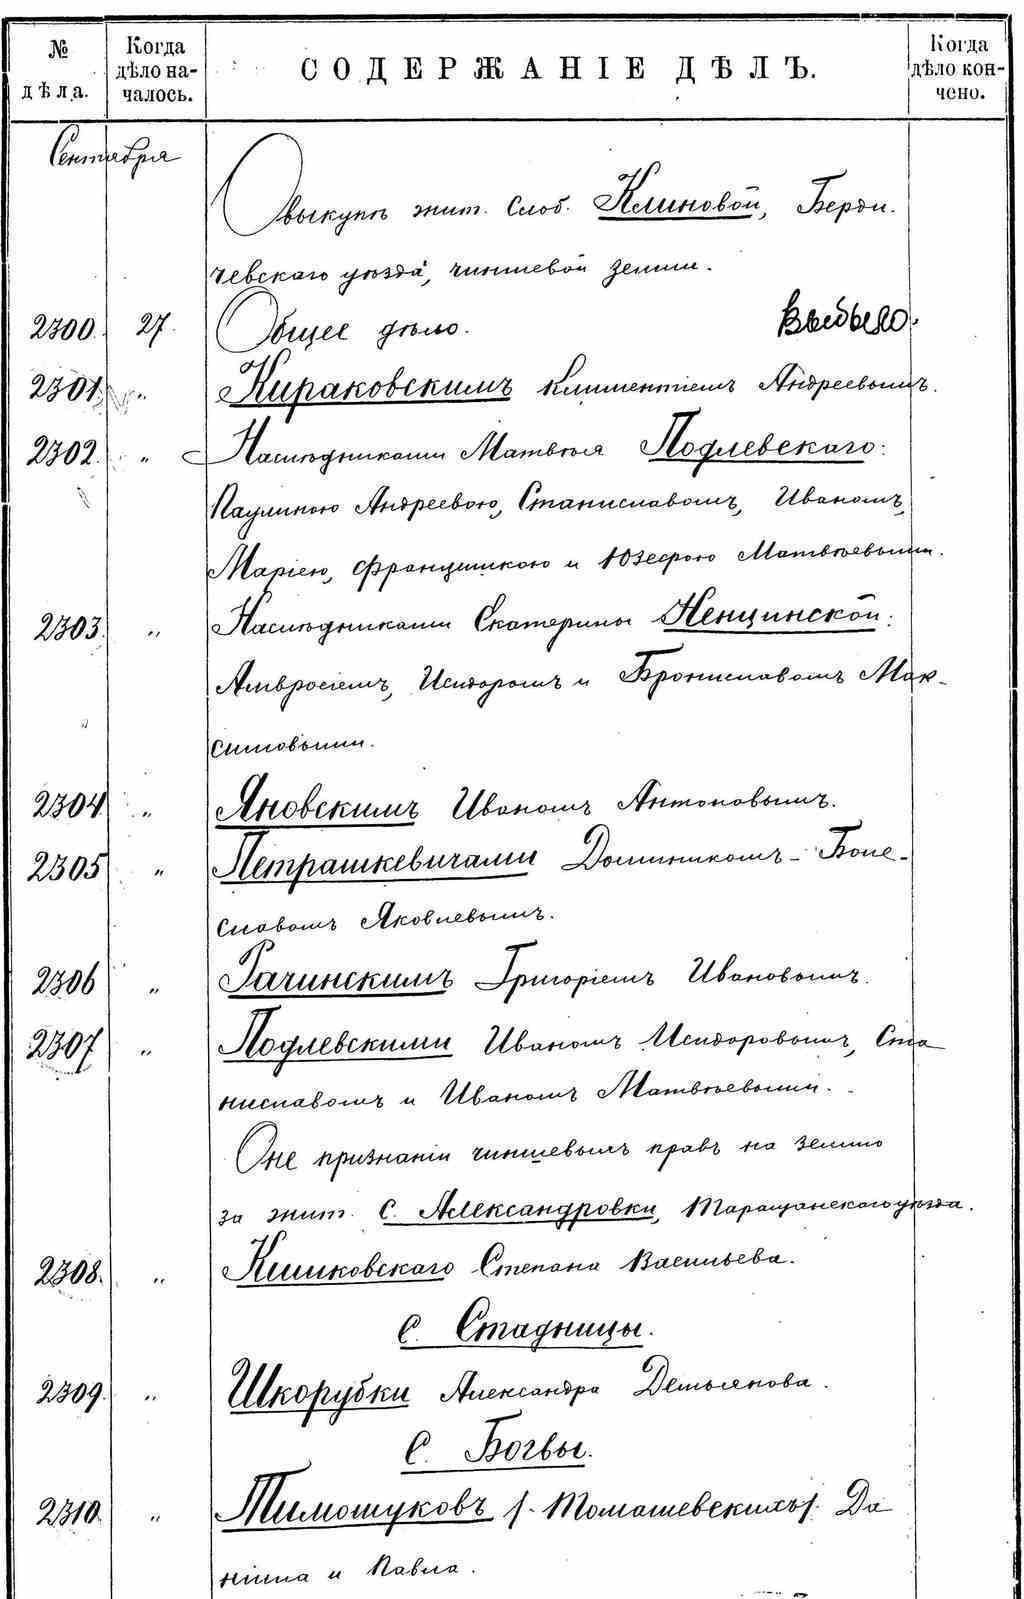 № дѣла.
Когда дѣло на-чалось.
СОДЕРЖАНІЕ ДѢЛЪ.
Когда дѣло кон-чено.
Сентября
О выкупѣ жит. Слоб. Клиновой, Берди-
чевскаго уѣзда, чиншевой земли.
2300. 27. Общее дѣло. Выбыло.
2301 „ Кираковскимъ Климентіемъ Андреевымъ.
2302. „ Наслѣдниками Матвѣя Подлевскаго:
Паулиною Андреевою, Станиславомъ, Иваномъ,
Маріею, Францишкою и Юзефою Матвѣевыми.
2303. „ Наслѣдниками Екатерины Ненцинской:
Амвросіемъ, Исидоромъ и Брониславомъ Мак-
симовыми.
2304 „ Яновскимъ Иваномъ Антоновымъ.
2305 „ Петрашкевичами Доминикомъ-Боле-
славомъ Яковлевымъ.
2306 „ Рачинскимъ Григоріемъ Ивановымъ.
2307 „ Подлевскими Иваномъ Исидоровымъ, Ста
ниславомъ и Иваномъ Матвѣевыми.
О не признаніи чиншевыхъ правъ на землю
за жит. с. Александровки, Таращанскаго уѣзда.
2308. „ Климковскаго Степана Васильева.
С. Стадницы.
2309. „ Шкорубки Александра Демьянова.
С. Богвы.
2310. „ Тимощуковъ /Томашевскихъ/ Да
ніила и Павла.